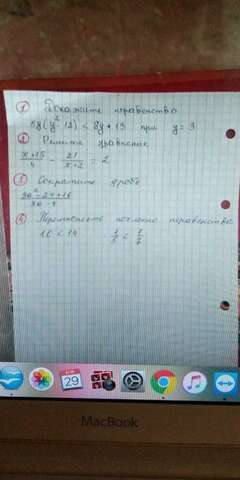 ① Докажите неравенство
5y(y²-12) < 8y + 13 при y = 3
② Решите уравнение
x+15/4 - 21/x+2 = 2
③ Сократите дробь
④ Перемножьте почленно неравенства
10 < 14 1/5 < 1/4
29
MacBook